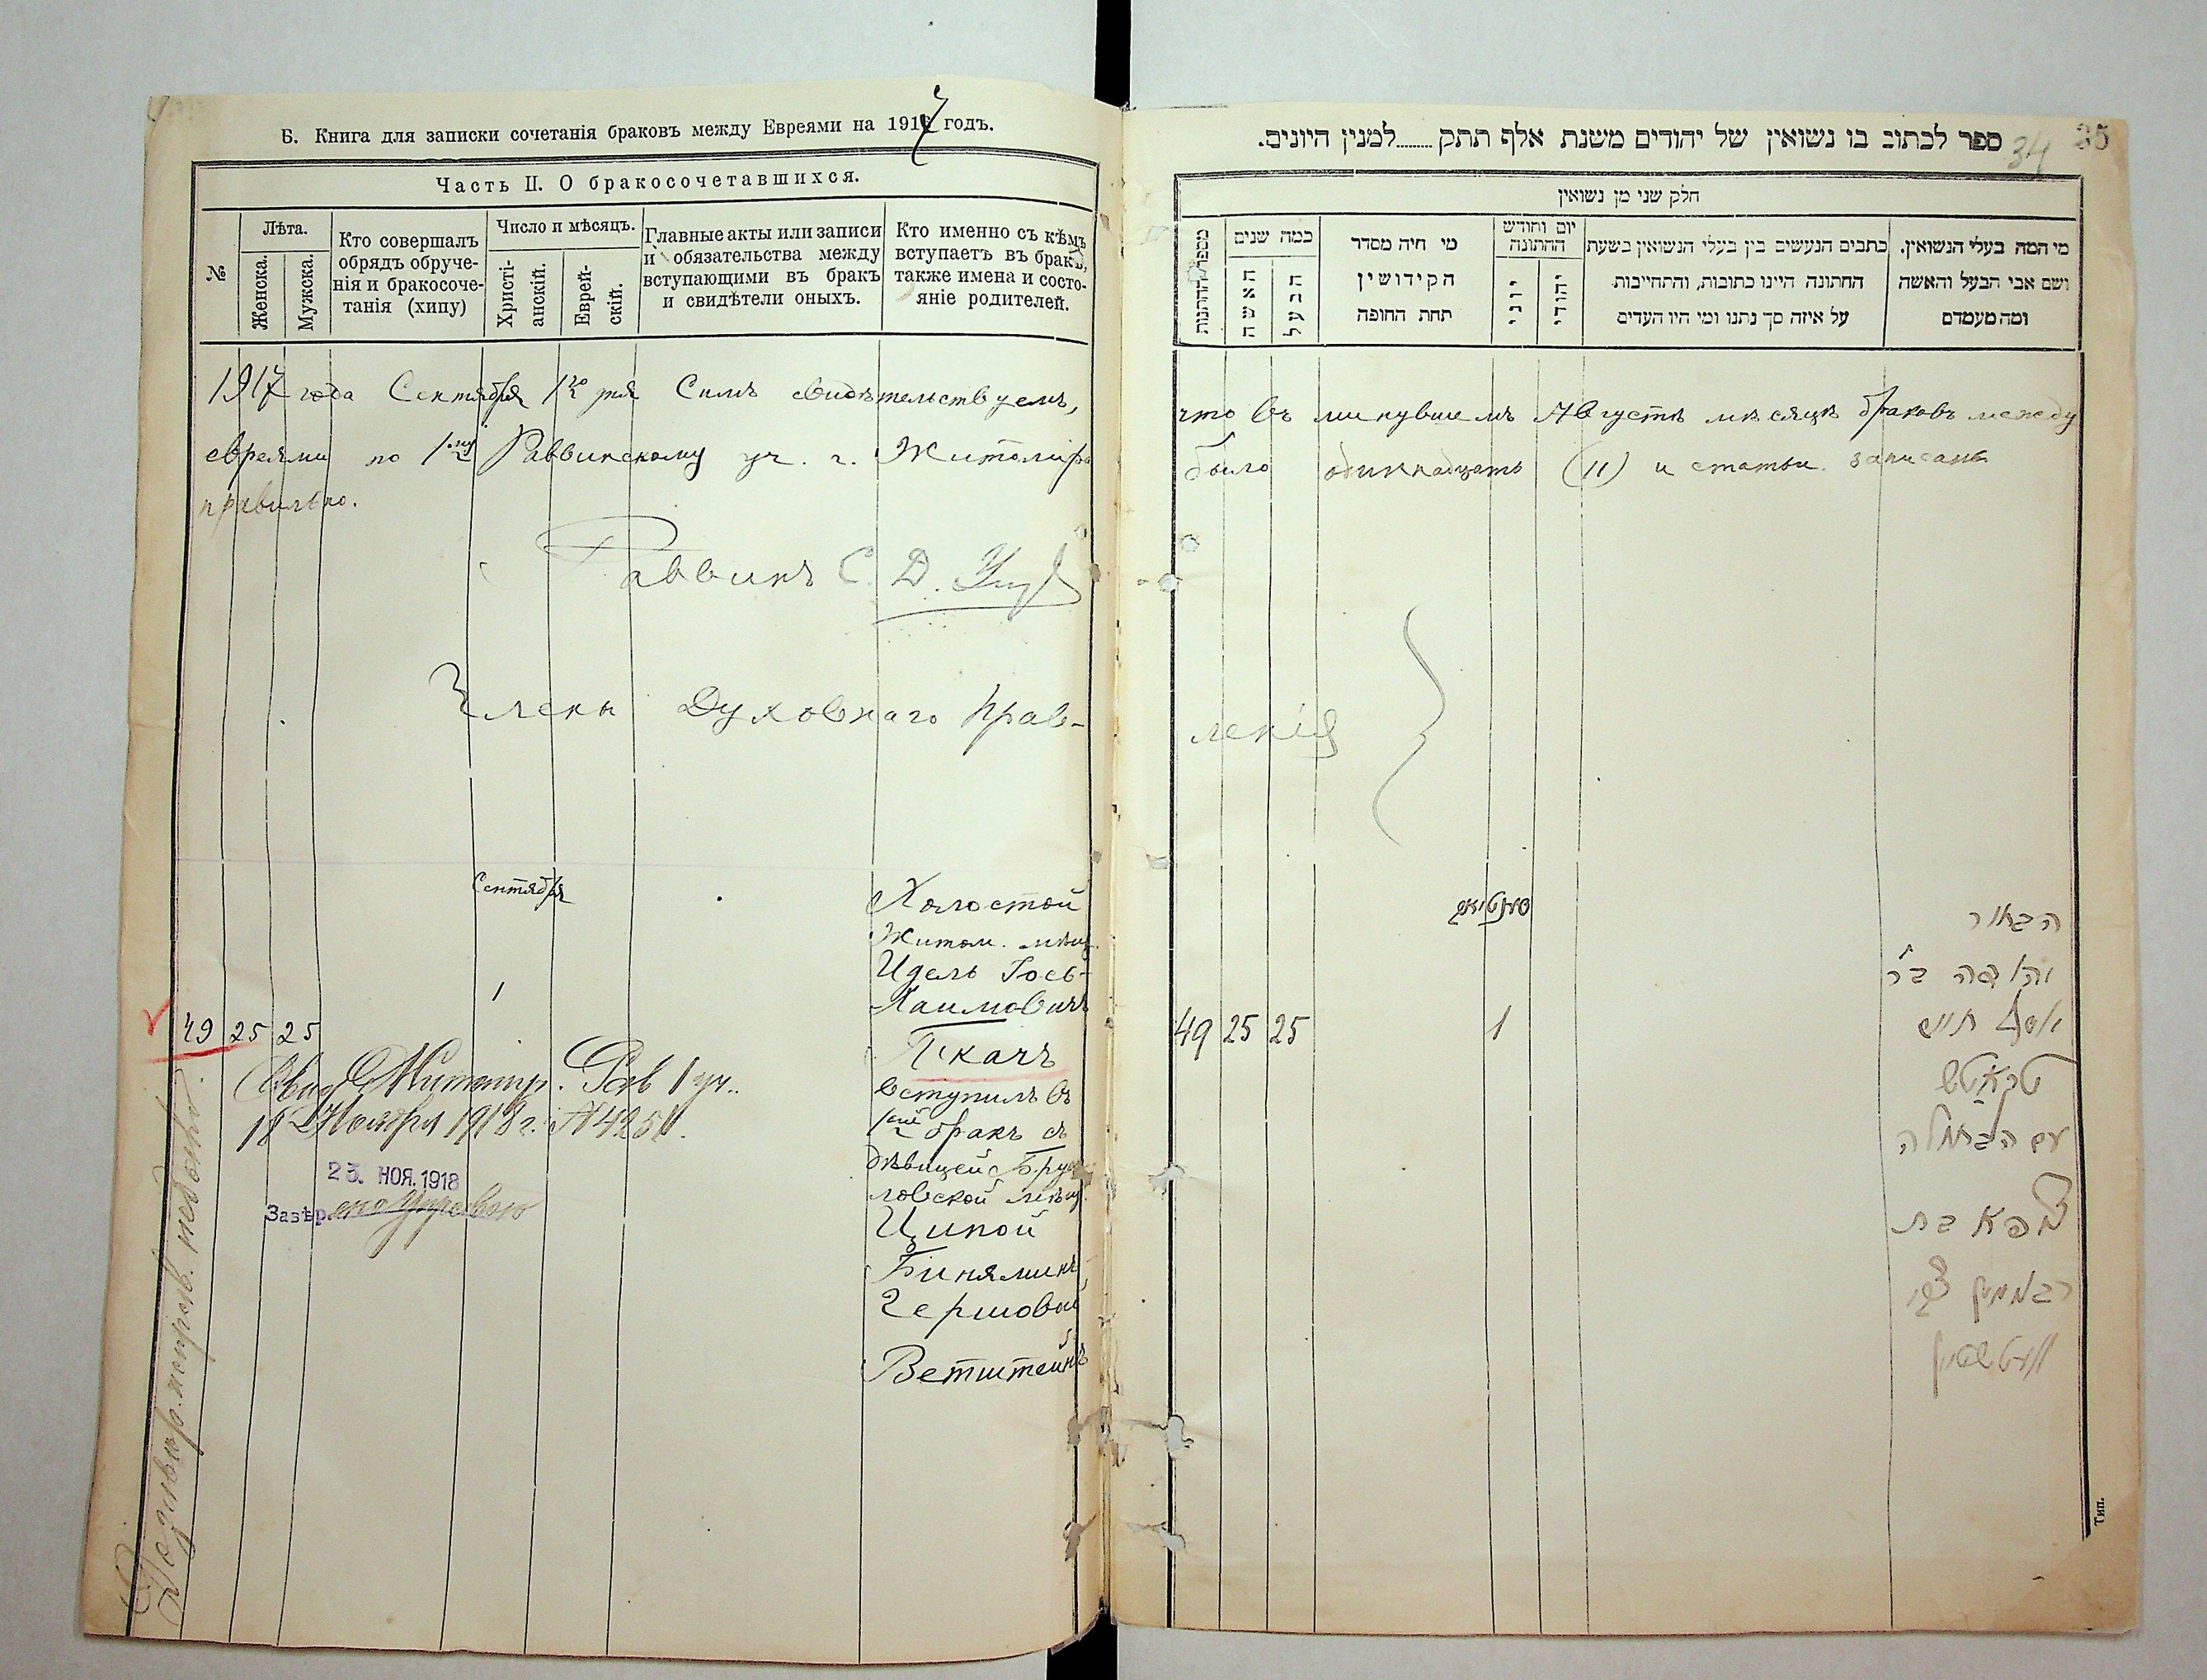 Б. Книга для записки сочетанія браковъ между Евреями на 1917 годъ.
Часть II. О бракосочетавшихся.
№
Лѣта.
Женска.
Мужска.
Кто совершалъ
обрядъ обруче-
нія и бракосоче-
танія (хипу)
Число и мѣсяцъ.
Христі-
анскій.
Еврей-
скій.
Главные акты или записи
и обязательства между
вступающими въ бракъ
и свидѣтели оныхъ.
Кто именно съ кѣмъ
вступаетъ въ бракъ,
также имена и состо-
яніе родителей.
1917 года Сентября 1го дня Симъ свидѣтельствуемъ,
евреями по 1му Раввинскому уч. г. Житомира
правильно.
Раввинъ С. Д.
Члены Духовнаго Прав-
Сентября
1
49 25 25
Холостой
Житом. мѣщ.
Идель Іось-
Хаимовичъ
Ткачъ
вступилъ въ
1ый бракъ съ
дѣвицей Бруси-
ловской мѣщ.
Ципой
Биняминъ
Гершовой
Ветштейнъ
Свид. Житомир. Рав 1 уч..
18 Ноября 1918 г. № 4251.
23. НОЯ. 1918
Завѣр.
34 35
ספר לכתוב בו נשואין של יהודים משנת אלף תתק......... למנין היונים.
חלק שני מן נשואין
מספר החתנות
כמה שנים
האשה
הבעל
מי היה מסדר
הקידושין
תחת החופה
יום וחודש
החתונה
יוני
יהודי
כתבים הנעשים בין בעלי הנשואין בשעת
החתונה היינו כתובות, והתחייבות
על איזה סך נתנו ומי היו העדים
מי המה בעלי הנשואין.
ושם אבי הבעל והאשה
ומה מעמדם
что въ минувшемъ Августѣ мѣсяцѣ браковъ между
было одиннадцать (11) и статьи записаны
ленія
49 25 25
1
הבחור
יהודה ב״ר
יוסף חיים
טקאטש
עם הבתולה
צפא בת
בנימין צבי
וועטשטיין
Тип.